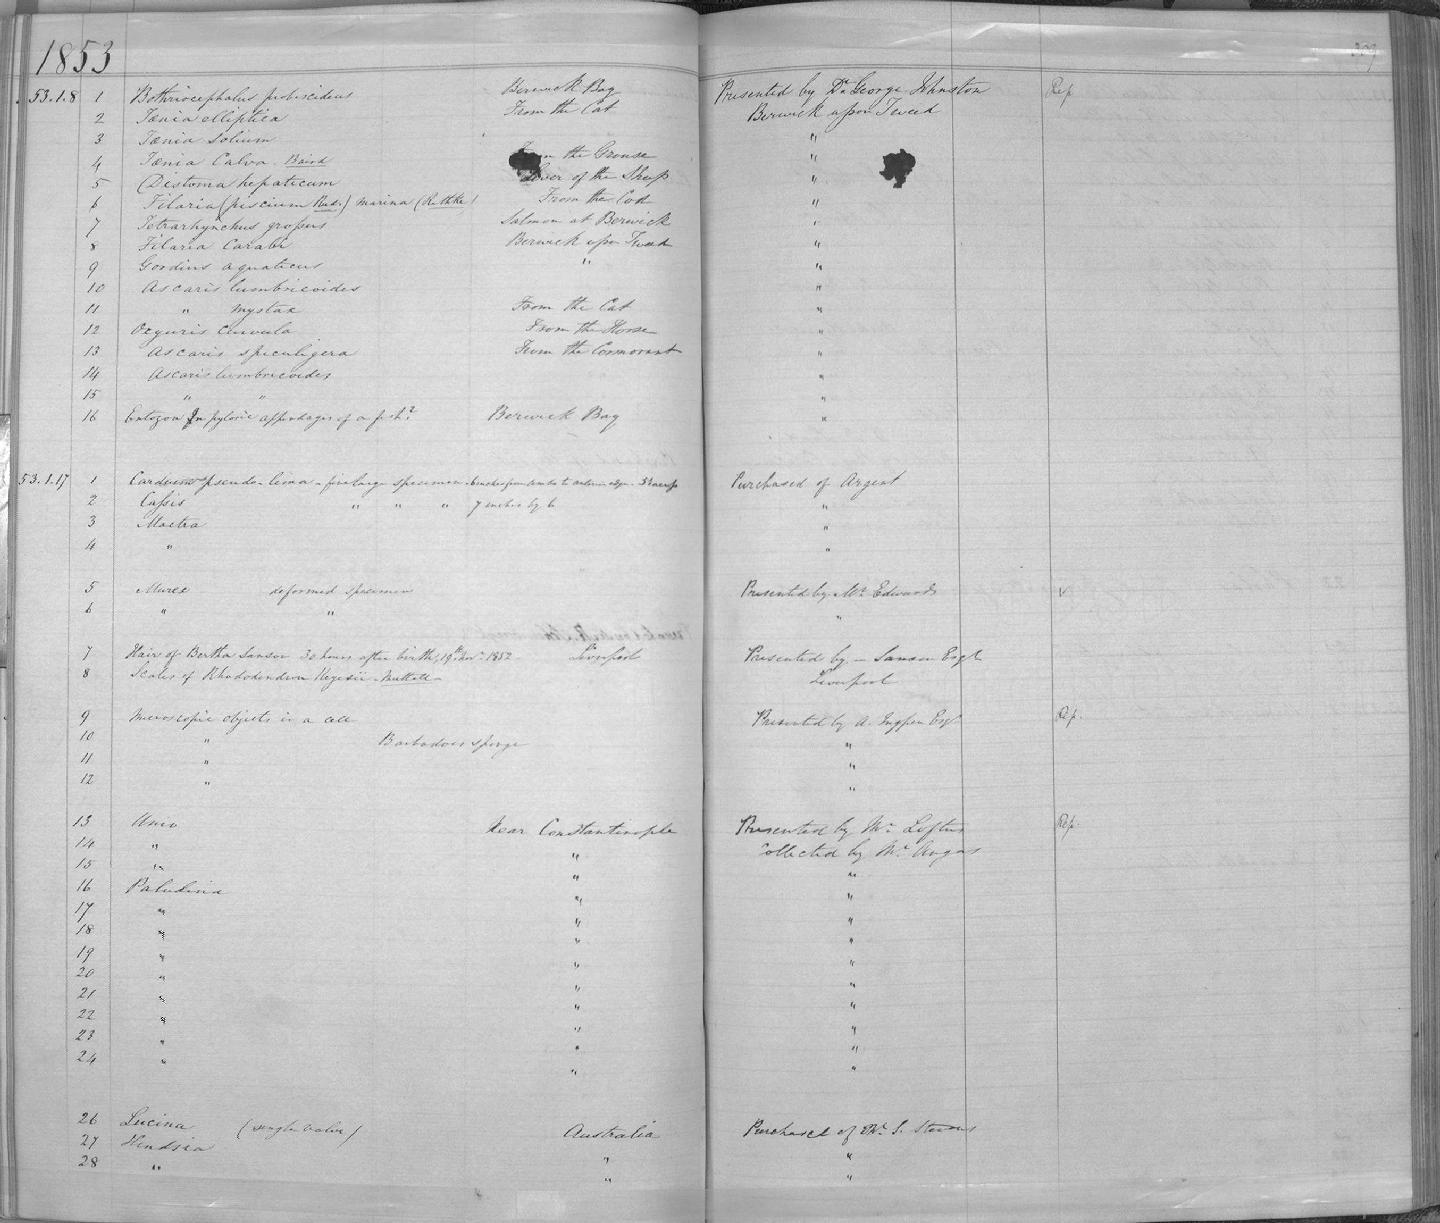 1853
53.1.8 1 Bothriocephalus proboscideus Berwick Bay Presented by Dr George Johnston Rep
2 Tænia elliptica From the Cat Berwick upon Tweed
3 Tænia Solium "
4 Tænia Calva. Baird From the Grouse "
5 Distoma hepaticum Liver of the Sheep "
6 Filaria (piscium Rud.) marina (Rathke) From the Cod "
7 Tetrarhynchus grossus Salmon at Berwick "
8 Filaria Carabi Berwick upon Tweed "
9 Gordius aquaticus " "
10 Ascaris lumbricoides "
11 " mystax From the Cat "
12 Oxyuris curvula From the Horse "
13 Ascaris spiculigera From the Cormorant "
14 Ascaris lumbricoides "
15 " " "
16 Entozoa In pyloric appendages of a fish? Berwick Bay "
53.1.17 1 Cardium pseudo-lima - fine large specimen - 6 inches from umbo to Purchased of Argent
2 Cassis " " " 7 inches by 6 "
3 Mactra "
4 " "
5 Murex deformed specimen Presented by Mr Edwards v
6 " " "
7 Hair of Bertha Sanson 30 hours after birth, 19th Novr 1852 Liverpool Presented by - Sanson Esqr
8 Scales of Rhododendron Nuttall Liverpool
9 Microscopic objects in a cell Presented by A. Ingpen Esqr Rep.
10 " Barbadoes sponge "
11 " "
12 " "
13 Unio Near Constantinople Presented by Mr Loftus Rep.
14 " " Collected by Mr Angas
15 " " "
16 Paludina " "
17 " " "
18 " " "
19 " " "
20 " " "
21 " " "
22 " " "
23 " " "
24 " " "
26 Lucina (single valve) Australia Purchased of Mr S. Stevens
27 Hindsia " "
28 " " "